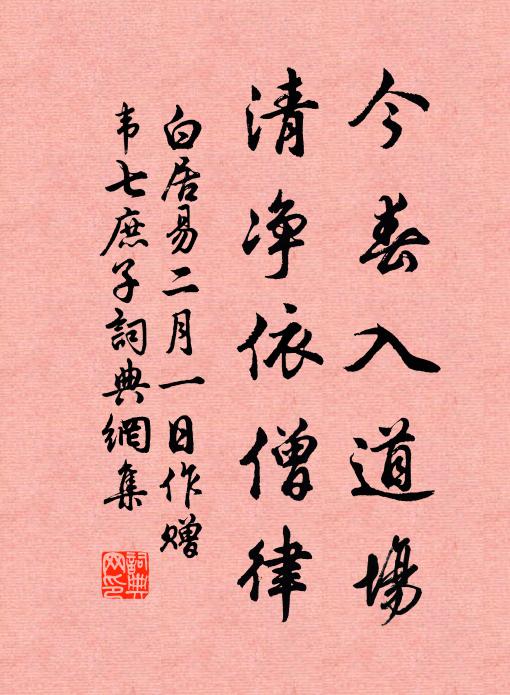 今春入道場
清净依僧律
白居易二月一日作贈
韦七庶子詞典網集
詞典网印